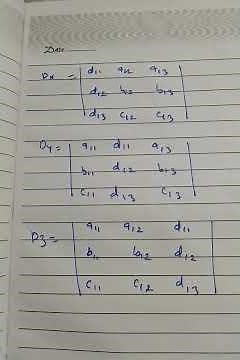 Date
Dx = | d11 a12 a13 |
| d12 b12 b13 |
| d13 c12 c13 |
Dy = | a11 d11 a13 |
| b11 d12 b13 |
| c11 d13 c13 |
Dz = | a11 a12 d11 |
| b11 b12 d12 |
| c11 c12 d13 |